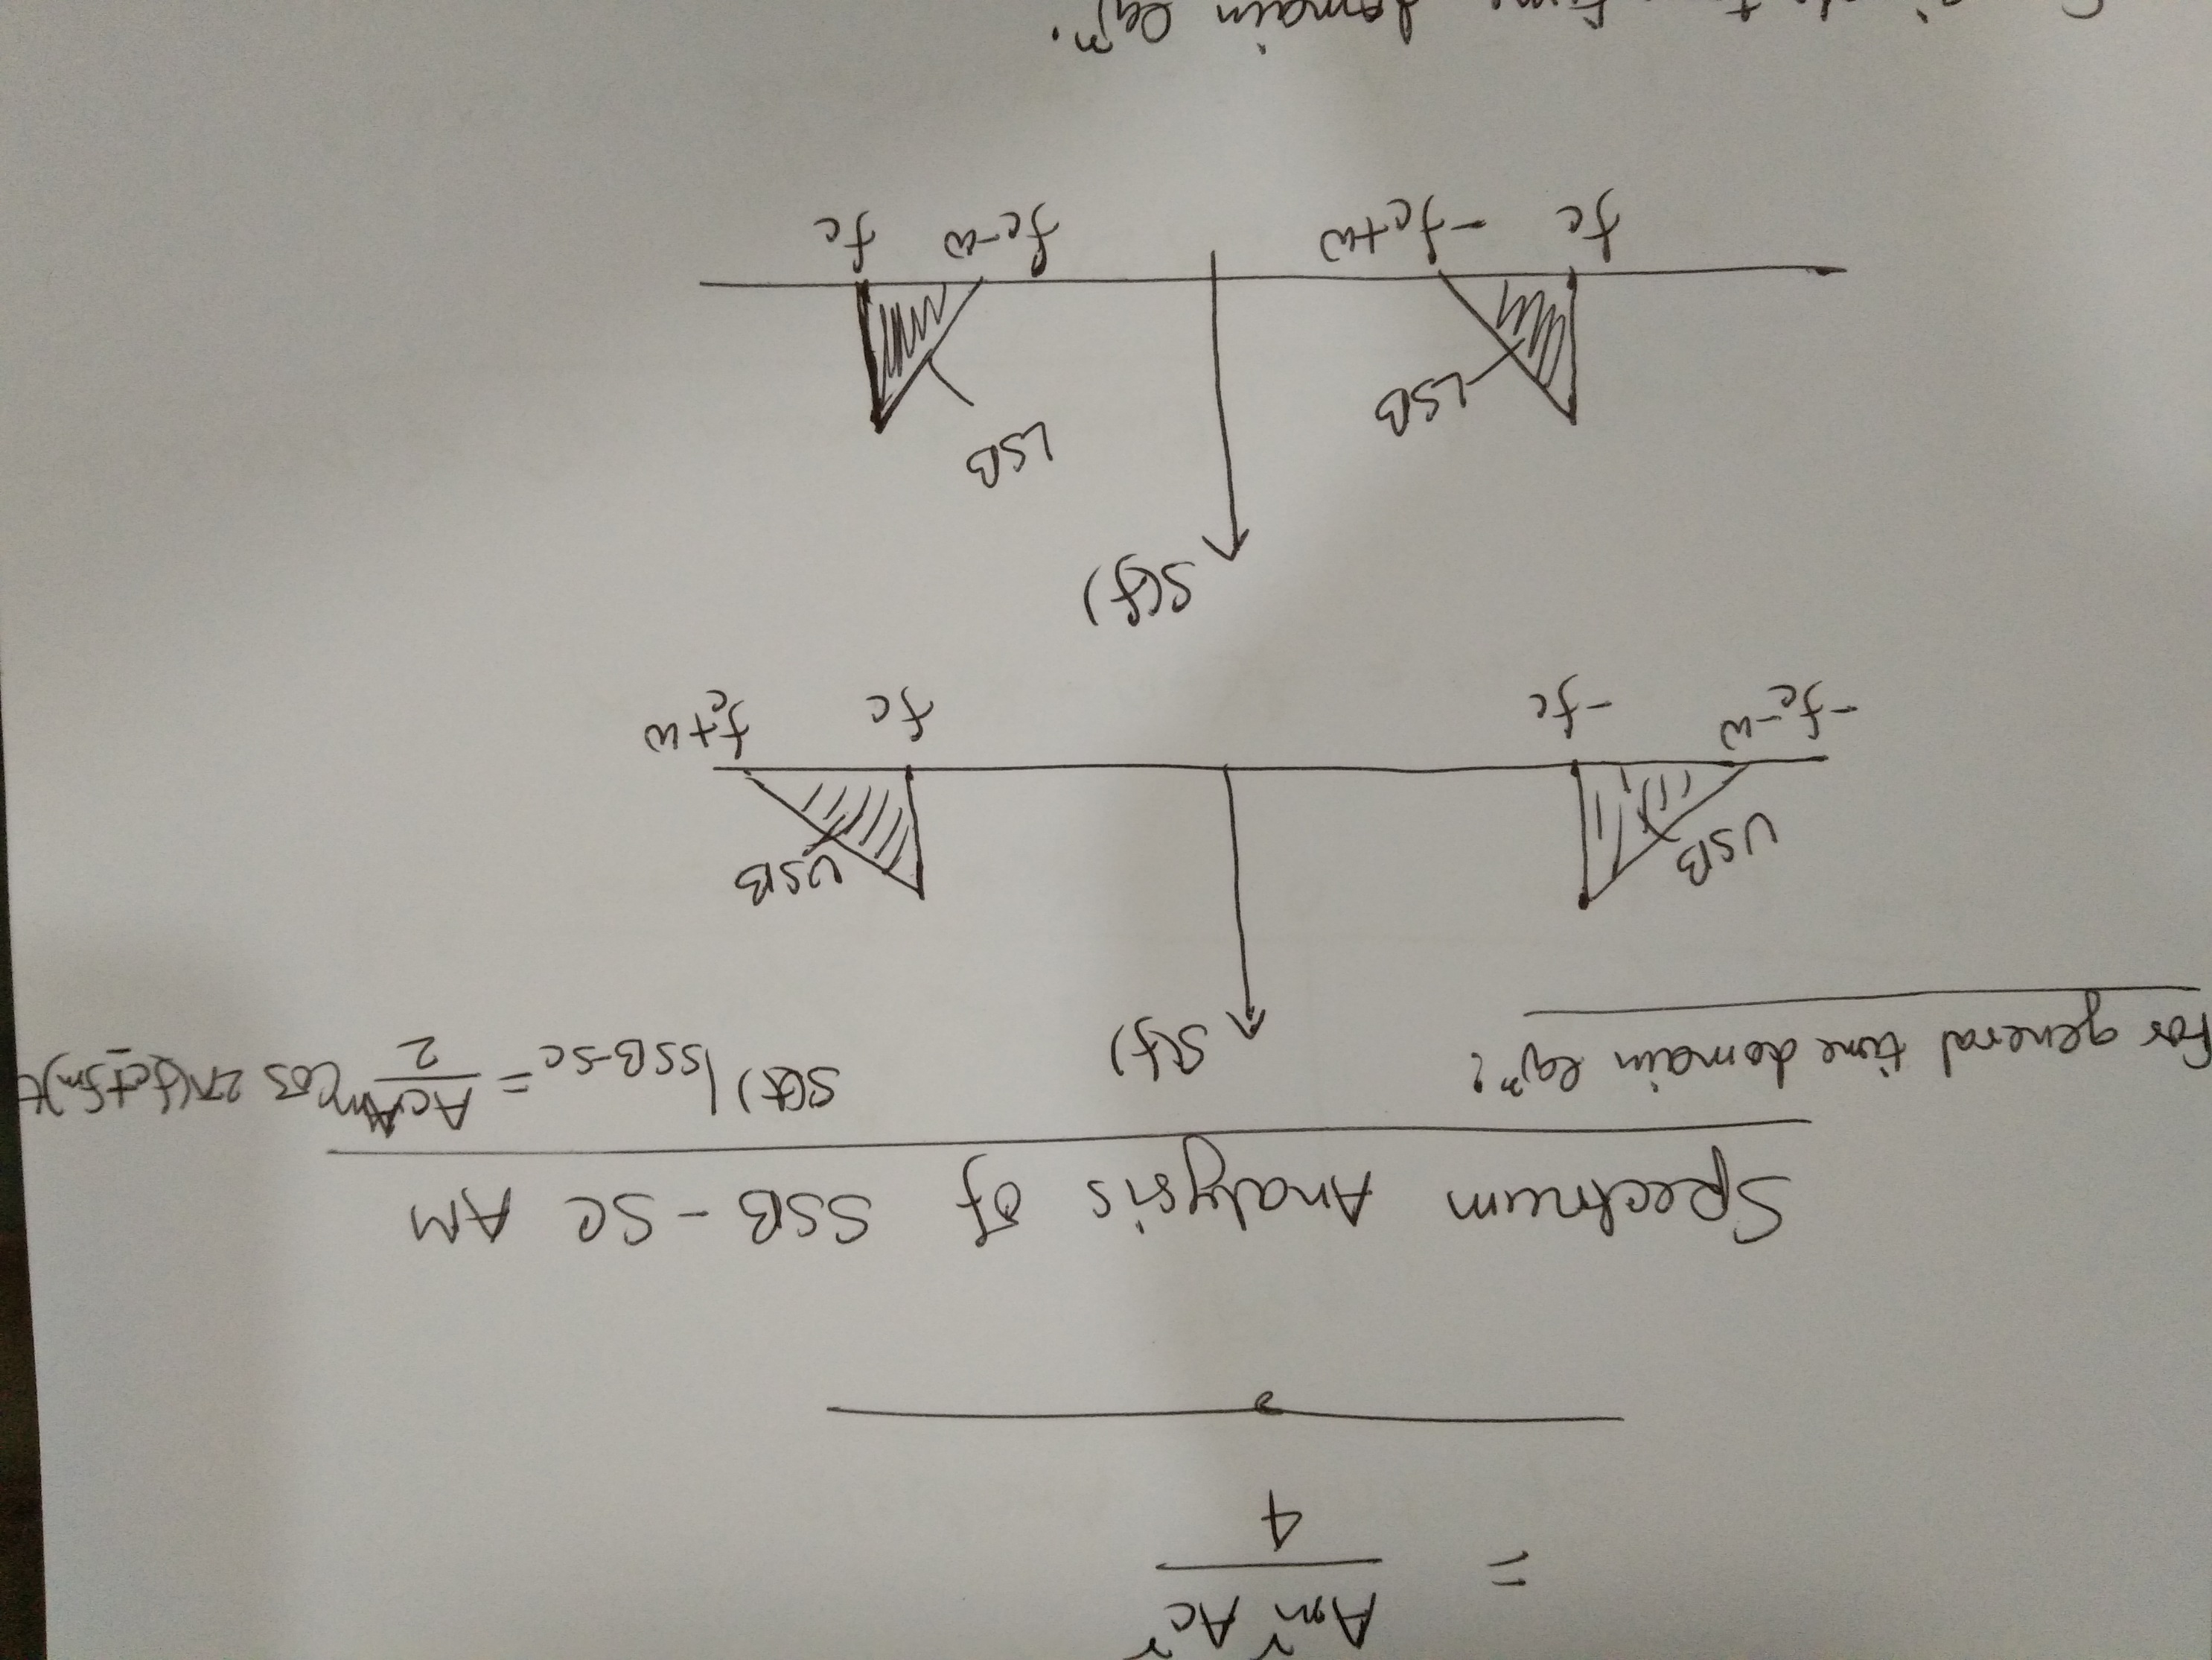 = Am² Ac² / 4
Spectrum Analysis of SSB-SC AM
For general time domain eqⁿ:
S(t)|SSB-SC = AcAm/2 cos 2π(fc±fm)t
S(f)
USB USB
-fc-w -fc fc fc+w
S(f)
LSB LSB
fc -fc+w fc-w fc
time domain eqⁿ.